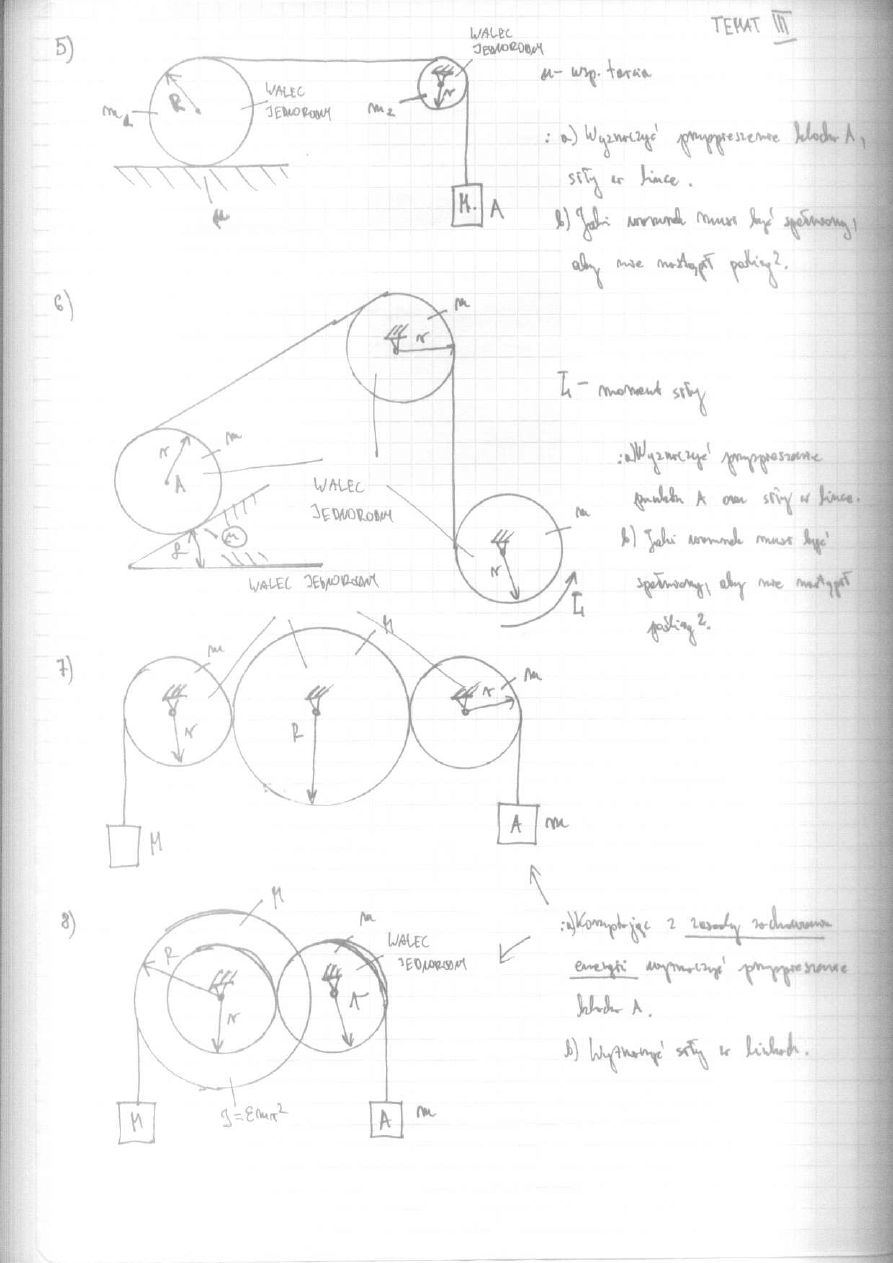 TEMAT III
5)
WALEC
JEDNORODNY
m1
R
WALEC
JEDNORODNY
m2
r
μ
M
A
μ - wsp. tarcia
: a) Wyznaczyć przyspieszenie klocka A,
siły w lince.
b) Jaki warunek musi być spełniony,
aby nie nastąpił poślizg?
6)
m
r
r
m
A
α
μ
WALEC
JEDNORODNY
m
r
L - moment siły
: a) Wyznaczyć przyspieszenie
punktu A oraz siły w lince.
b) Jaki warunek musi być
spełniony, aby nie nastąpił
poślizg?
WALEC JEDNORODNY
7)
m
r
R
M
r
m
M
A m
8)
M
R
r
m
WALEC
JEDNORODNY
r
J=εmr²
M
A m
: a) Korzystając z zasady zachowania
energii wyznaczyć przyspieszenie
klocka A.
b) Wyznaczyć siły w linkach.